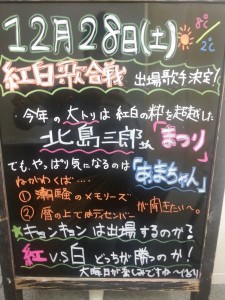 12月28日(土) 8℃/2℃
紅白歌合戦 出場歌手決定!
今年の大トリは紅白の粋を超越した
北島三郎さん「まつり」
でも、やっぱり気になるのは「あまちゃん」
ねがわくば‥‥
① 潮騒のメモリーズ
② 暦の上ではディセンバー
が聞きたい〜。
★キョンキョンは出場するのか?
紅V.S白 どっちが勝つのか!
大晦日が楽しみですね〜